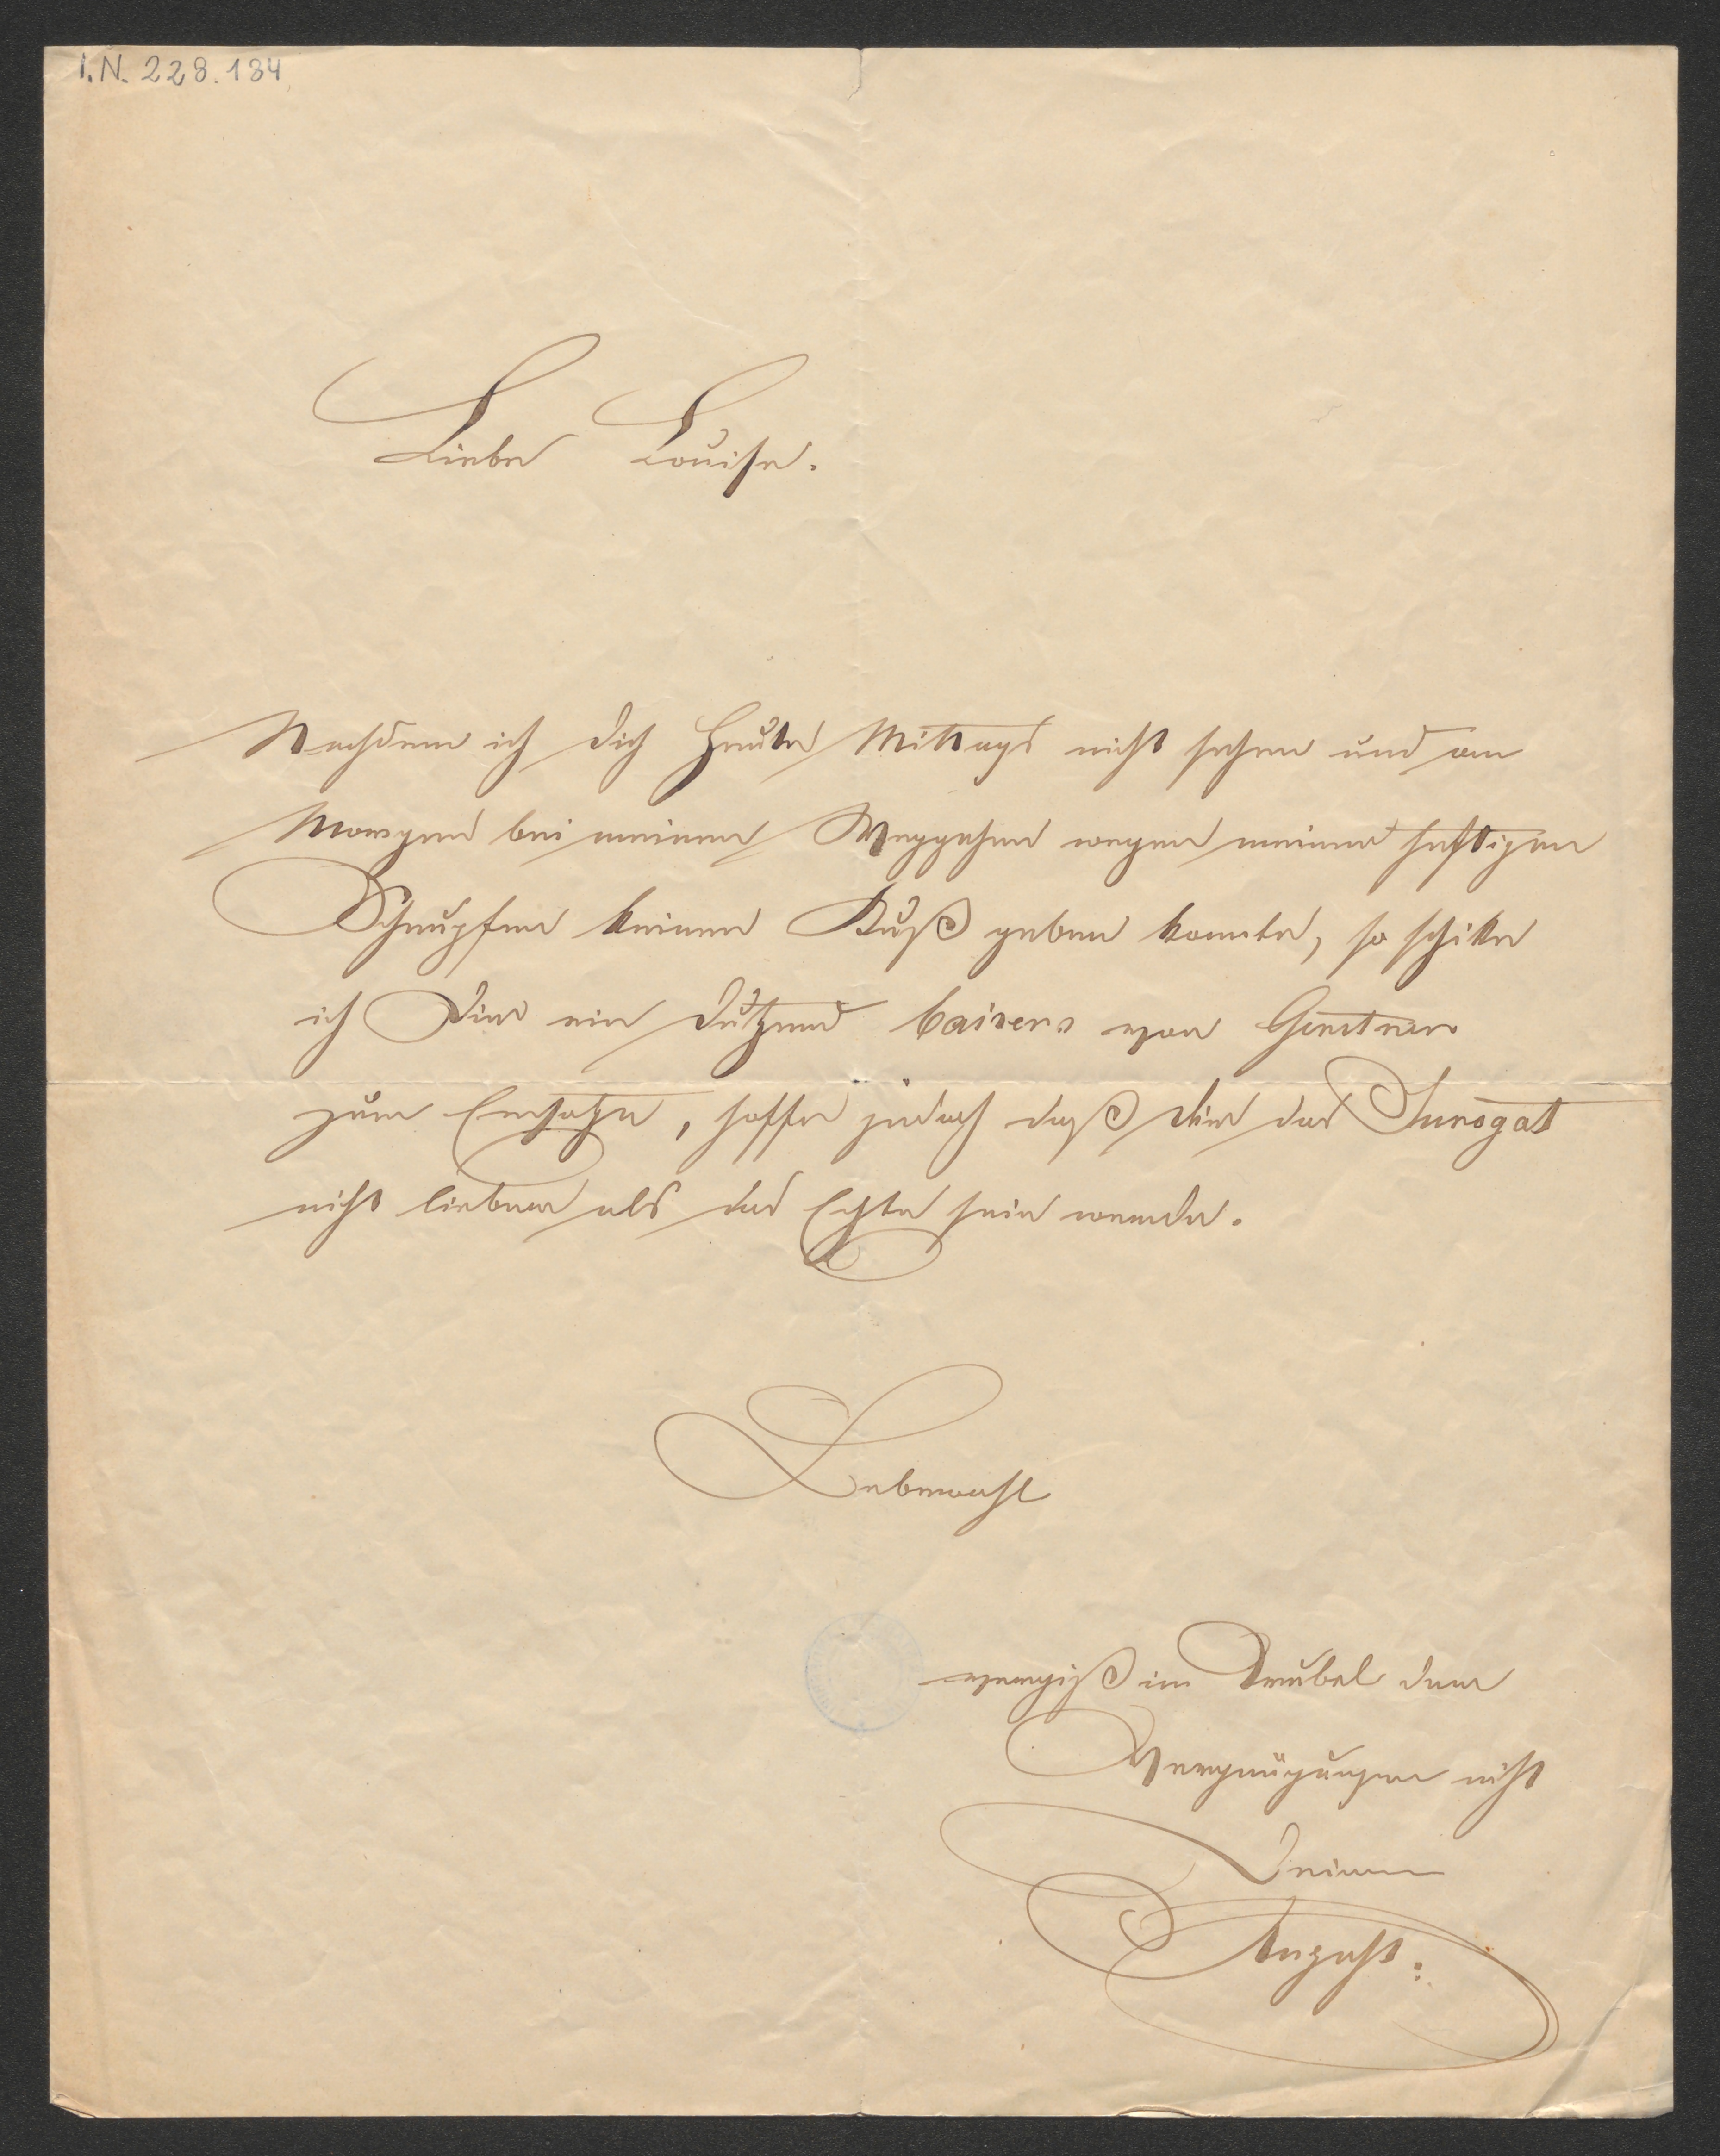 I.N. 228.184
Liebe Louise.
Nachdem ich Dich Heute Mittags nicht sehen und am
Morgen bei meinem Weggehen wegen meinen heftigen
Schnupfen keinen Kuß geben konnte, so schike
ich Dir ein Dutzend baisers von Gerstner
zum Ersatze, hoffe jedoch daß dir das Surogat
nicht lieber als das Echte sein werde.
Lebewohl
vergiß im Trubel der
Vergnügungen nicht
Deinen